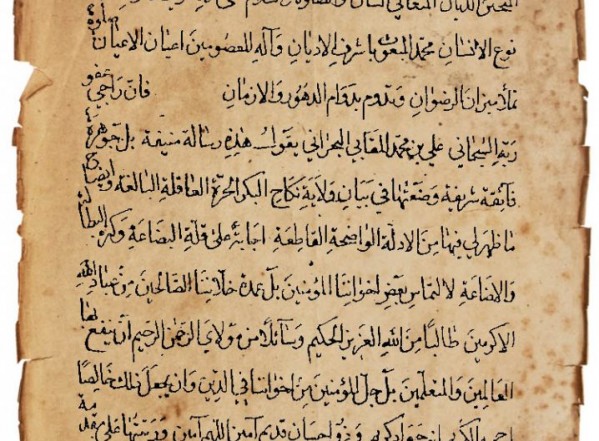 نوع الانسان محمد المبعوث باشرف الاديان وآله المعصومين اعيان الاعيان صلوة
تملأ ميزان الرضوان وتدوم بدوام الدهور والازمان فان راجي عفو
ربه السبحاني علي بن محمد المقابي البحراني يقول هذه رسالة منيفة بل جوهرة
فائقة شريفة وضعتها في بيان ولاية نكاح البكر الحرة العاقلة البالغة وايضاح
ما ظهر لي فيها من الادلة الواضحة القاطعة اجابة على قلة البضاعة وكثرة البطالة
والاضاعة لالتماس بعض اخواننا المؤمنين بل عمدة خلاننا الصالحين من عباد الله
الاكرمين طالبا من الله العزيز الحكيم وسائلا من مولاي الرحمن الرحيم ان ينفع بها
العالمين والمتعلمين بل جل المؤمنين من اخواننا في الدين وان يجعل ذلك خالصا
جواد كريم وذو احسان قديم آمين اللهم آمين ورتبتها على مقدمة